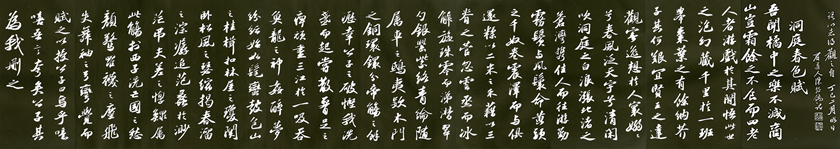 洞庭春色賦
吾聞橘中之樂不減商
山豈霜餘之不食而四老
人者游戲於其間悟此世
之泡幻藏千里於一班
舉棗葉之有餘納芥
子其何艱宜賢王之達
觀寄逸想於人寰嫋嫋
兮春風泛天宇兮清閑
吹洞庭之白浪漲北渚之
蒼灣攜佳人而往游勤
霧鬢與風鬟命黃頭
之千奴卷震澤而與俱
還糅以二米之禾藉以三
脊之菅忽雲蒸而冰
解旋珠零而涕潸翠
勺銀罌紫絡青綸隨
屬車之鴟夷款木門
之銅鐶分帝觴之餘
瀝幸公子之破慳我洗
盞而起嘗散腰足之
痹頑盡三江於一吸吞
魚龍之神姦醉夢
紛紜始如髦蠻鼓包山
之桂楫扣林屋之瓊關
臥松風之瑟縮揭春溜
之淙潺追范蠡於渺
茫弔夫差之惸鰥屬
此觴於西子洗亡國之愁
顏驚羅襪之塵飛
失舞袖之弓彎覺而
賦之以授公子曰烏乎噫
嘻吾言夸矣公子其
為我刪之